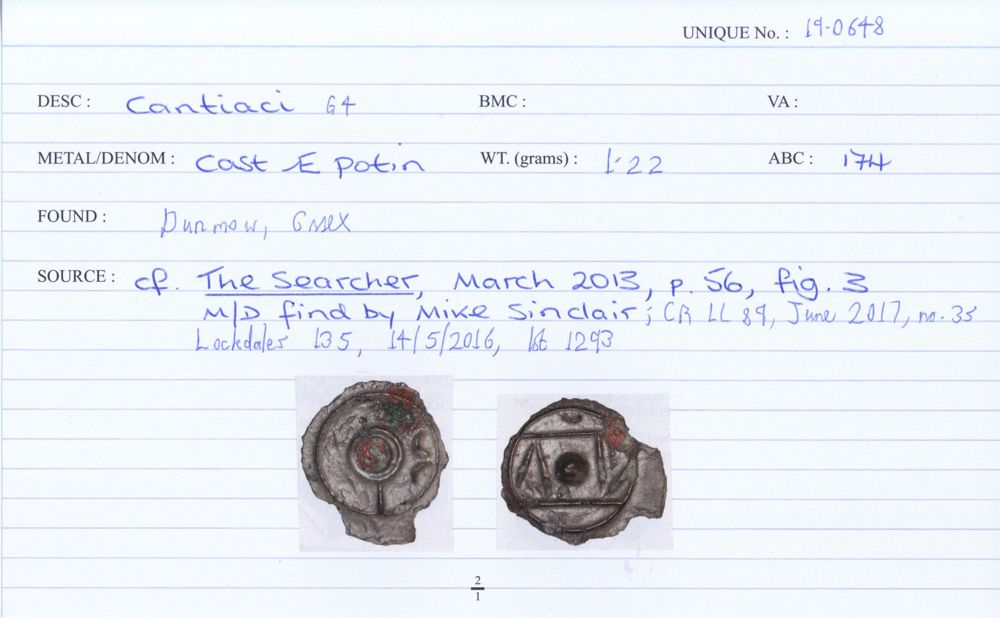 UNIQUE No. : 19-0648
DESC : Cantiaci G4 BMC : VA :
METAL/DENOM : Cast Æ potin WT. (grams) : 1.22 ABC : 174
FOUND : Dunmow, Essex
SOURCE : cf. The Searcher, March 2013, p. 56, fig. 3
M/D find by Mike Sinclair; CR LL 89, June 2017, no. 35
Lockdales 135, 14/5/2016, lot 1293
2
1